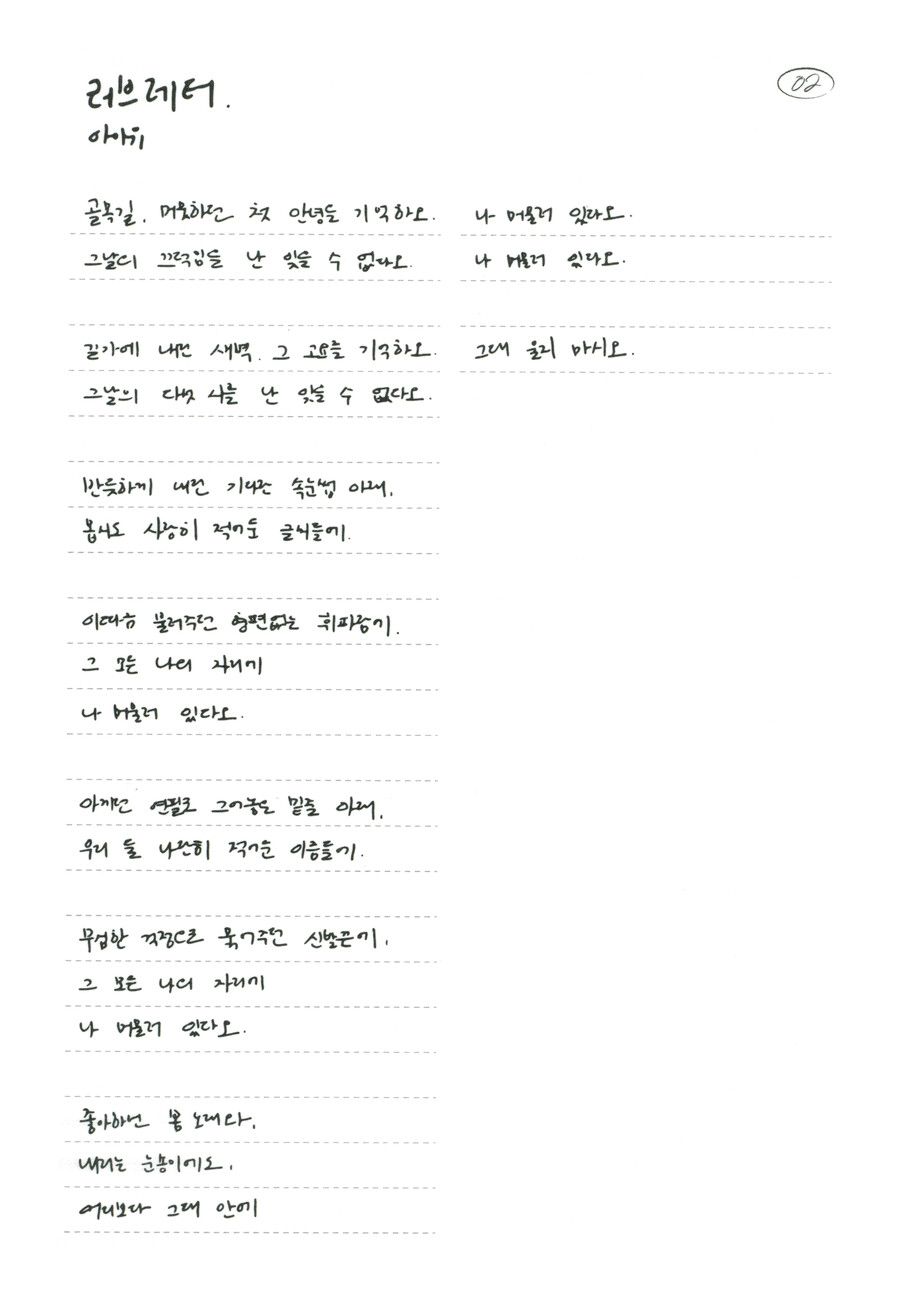 러브레터.
아이유
02
골목길, 머뭇하던 첫 안녕을 기억하오.
그날의 끄덕임을 난 잊을 수 없다오.
길가에 내린 새벽, 그 고요를 기억하오.
그날의 다섯 시를 난 잊을 수 없다오.
반듯하게 내린 기다란 속눈썹 아래,
몹시도 사랑히 적어둔 글씨들에.
이따금 불러주던 형편없는 휘파람에,
그 모든 나의 자리에
나 머물러 있다오.
아끼던 연필로 그어놓은 밑줄 아래,
우리 둘 나란히 적어둔 이름들에.
무심한 걱정으로 묶어주던 신발끈에,
그 모든 나의 자리에
나 머물러 있다오.
좋아하던 봄 노래와,
내리는 눈송이에도,
어디보다 그대 안에
나 머물러 있다오.
나 머물러 있다오.
그대 울지 마시오.